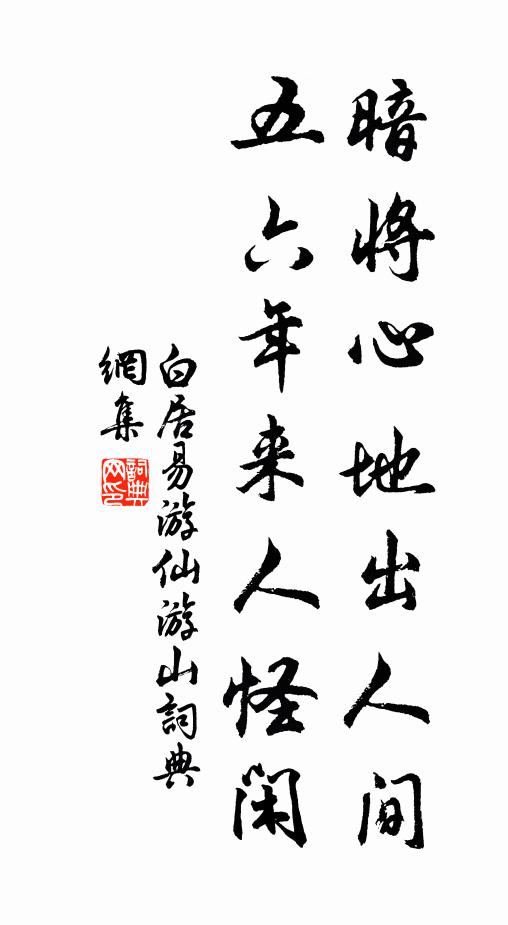 暗将心地出人间
五六年来人怪闲
白居易游仙游山詞典
網集
詞典
网印